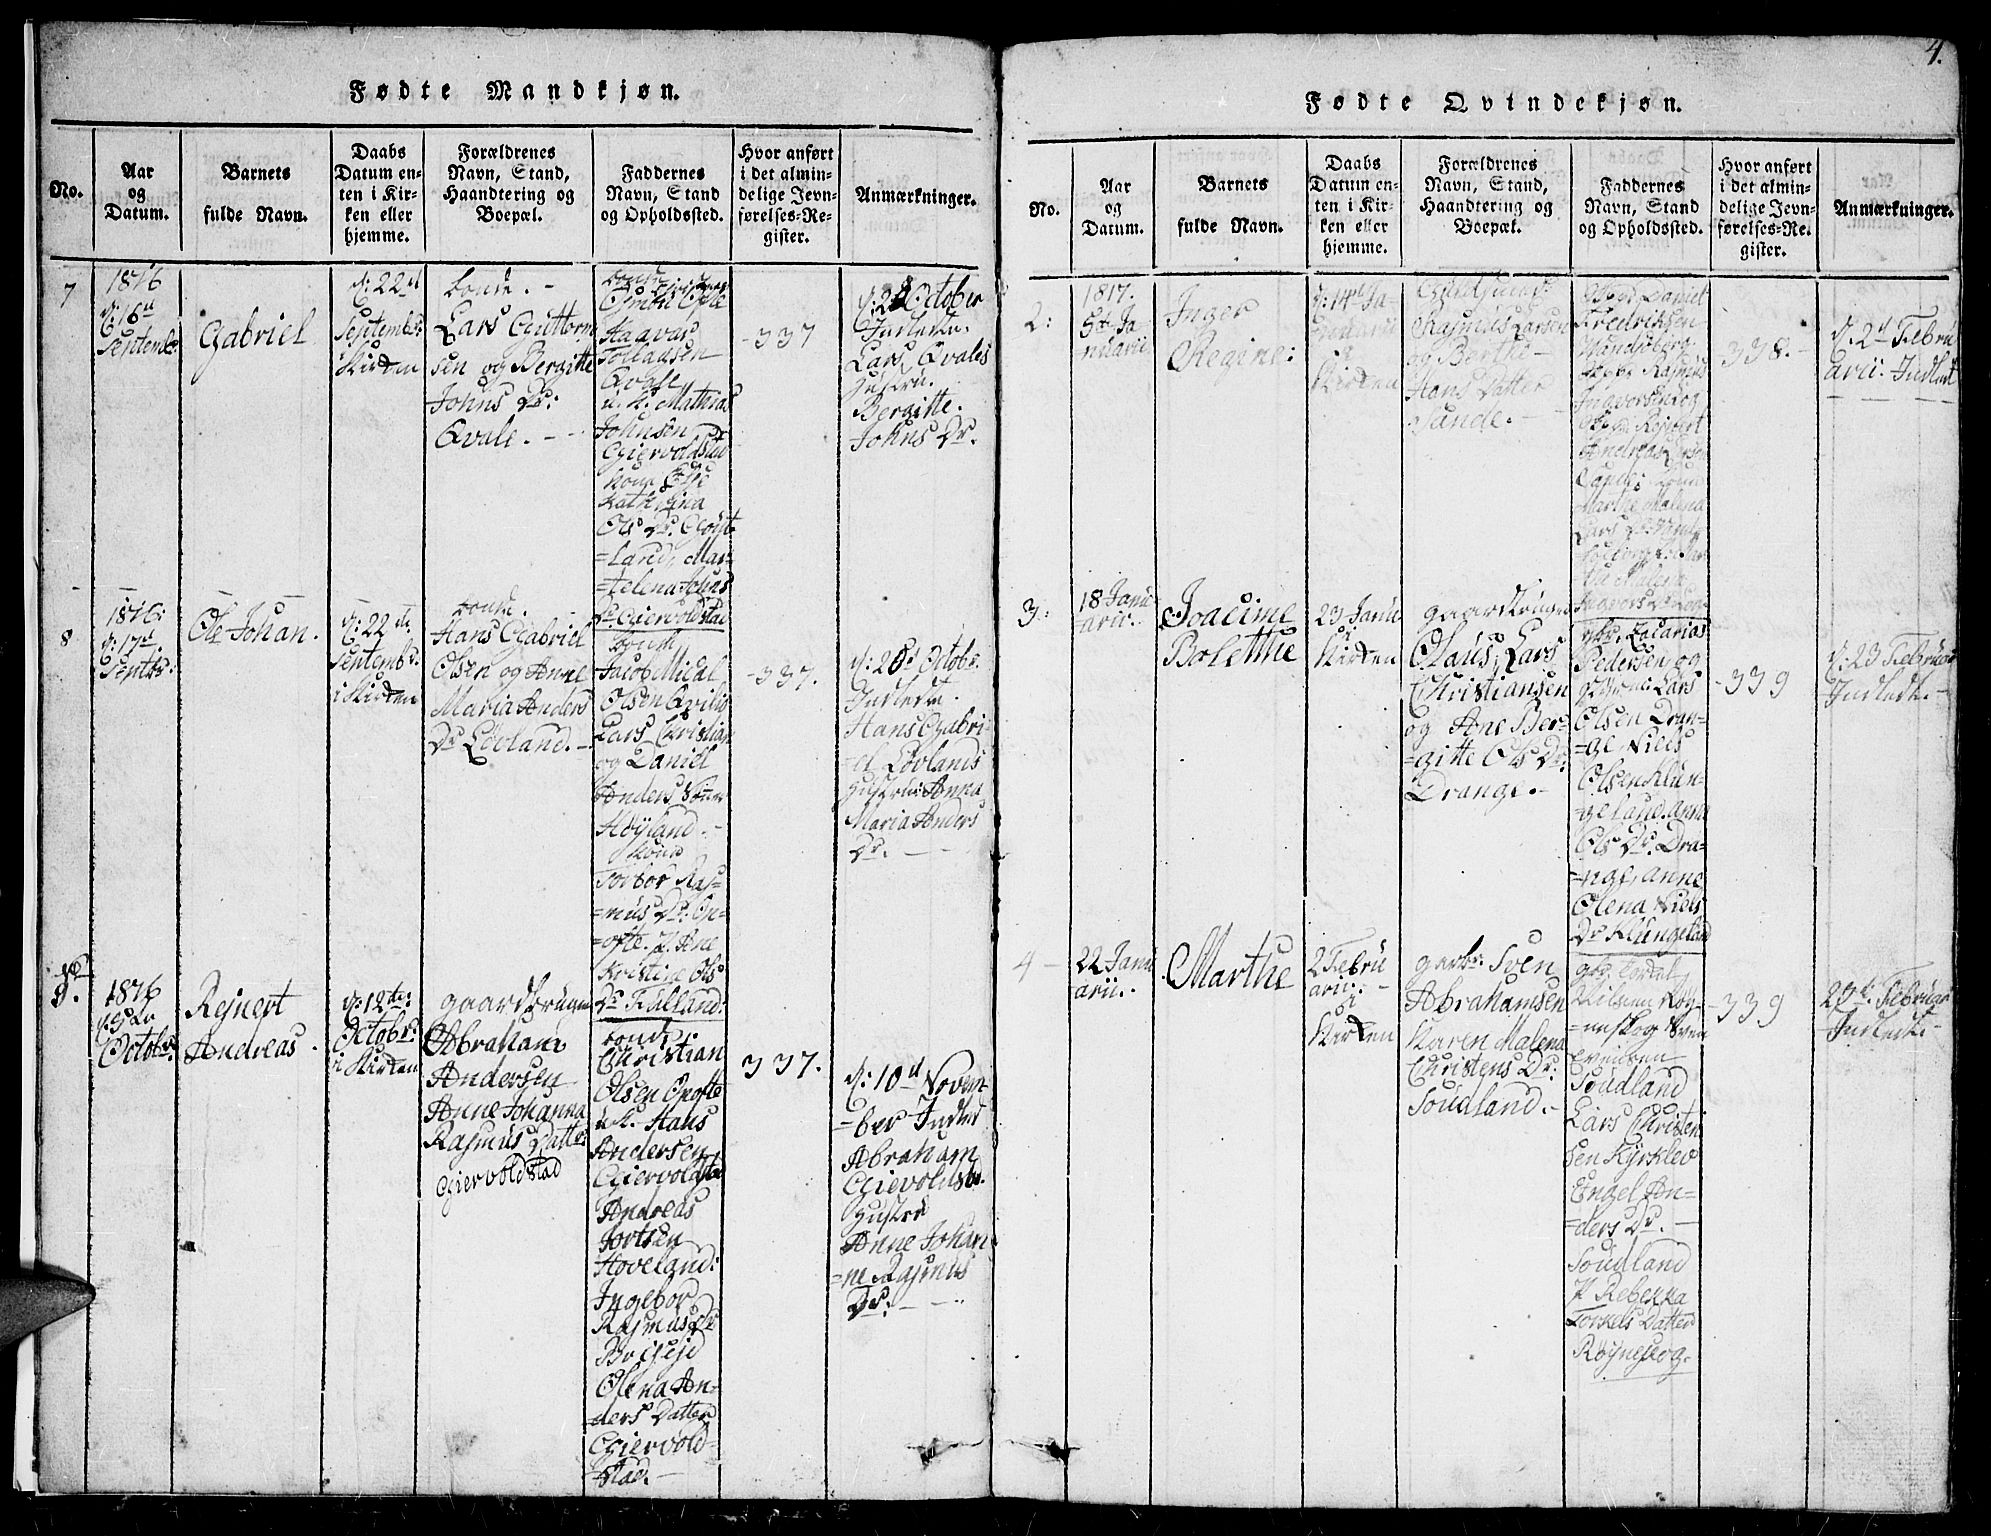 4.
Fødte Mandkjøn.
No.
Aar
og
Datum.
Barnets
fulde Navn.
Daabs
Datum en-
ten i Kir-
ken eller
hjemme.
Forældrenes
Navn, Stand,
Haandtering og
Boepæl.
Faddernes
Navn, Stand
og Opholdssted.
Hvor anført
i det almin-
delige Jevn-
førelses-Re-
gister.
Anmærkninger.
7
1816
d: 16d
Septembr:
Gabriel
d: 22d
Septembr:
i Kirken
bonde. -
Lars Guttorm
sen og Bergitte
Johns Dr:
Qvale. -
bonde
Haavas
Tollagsen
Qvale
u. k. Mathias
Johnsen
Giervoldstad
kone Else
Kathrina
Ols Dr. Gyst
=land, Mar=
=telena Johns
Dr Giervoldstad
337
October
Indledte
Lars Qvales
Hustru
Bergitte
Johns Dr.
8
1816:
d: 17d
Septbr:
Ole Johan.
d: 22de
Septembr:
i Kirken
bonde.
Hans Gabriel
Olsen og Anne
Maria Anders
Dr Løvland. -
bonde
Jacob Mical
Olsen
Lars Christian
og Daniel
Anders Sønner
Høyland. -
kone
Torbor Ras=
=mus Dr:
=ofte. P. Ane
Kristine Ols
Dr Fölland:
337.
d: 20d Octobr:
Indledte
Hans Gabri=
el Løvlands
Hustru Anna
Maria Anders
Dr. -
9.
1816
Octobr:
Rejnert
Andreas.
d: 12te
Octobr:
i Kirken
gaardbruger
Abraham
Andersen
Anne Johanna
Rasmus Datter
Giervoldstad
bonde:
Christian
Olsen Opofte
u. k. Hans
Andersen
Giervoldstad
Andreas
Jortsen
Hoveland:
Ingebor
Rasmus Dr
Olena An=
=ders Datter
Giervold=
=stad. -
337.
d: 10d Novem=
=ber Indled
Abraham
Gievoldsta.
Hustru
Anne Johan
=ne Rasmus
Dr: -
Fødte Qvindekjøn.
No.
Aar
og
Datum.
Barnets
fulde Navn.
Daabs
Datum en-
ten i Kir-
ken eller
hjemme.
Forældrenes
Navn, Stand,
Haandtering og
Boepæl.
Faddernes
Navn, Stand
og Opholdssted.
Hvor anført
i det almin-
delige Jevn-
førelses-Re-
gister.
Anmærkninger.
2:
1817.
5te Ja
nuarii
Inger
Regine:
d: 14de Ja
nuarii
i
Kirken
Rasmus Larsen
og Berthe
Hans Datter
Sunde. -
Daniel
Fredriksen
Rasmus
Ingvorsen og
Rejnert
Andreas Larsen
Sande:
Marthe Malena
Lars Dr:
Malena
Ingvors Dr
338. -
d: 2d Febru
arii: Indledt
3:
18 Janu
arii.
Joacime
Bolethe
23 Janu
i
Kirken
gaardbruger
Olaus, Lars
Christiansen
og Ane Ber=
=gitte Ols Dr:
Drange. -
gbr. Zacarias
Pedersen og
Lars
Olsen Dran=
=ge, Niels
Olsen Klun=
=geland. Anna
Ols Dr. Dra=
=nge, Anne
Olena Niels
Dr Klungeland
339
d: 23 Februar
Indledte. -
4
22 Janu
arii.
Marthe
2 Febru
arii:
i
Kirken
garbr: Sven
Abrahamsen
Karen Malena
Christens Dr:
Soudland. -
gbr.
Nilsen Røy=
=neskog Sven
Soudland
Lars Christen
sen Kyrklev
Engel An=
=ders Dr. -
Soudland
P Rebekka
Torkels Datter
Røyneskog.
339
Februar
Indledte -